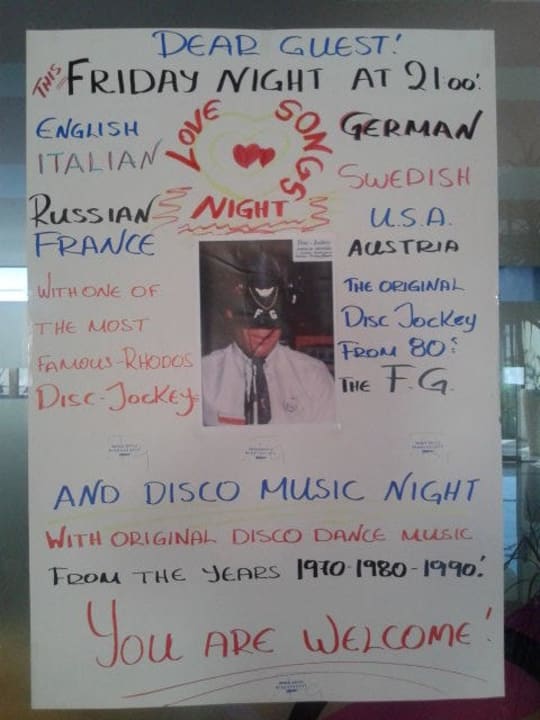 DEAR GUEST!
THIS FRIDAY NIGHT AT 21:00!
LOVE SONGS
NIGHT
ENGLISH
ITALIAN
RUSSIAN
FRANCE
WITH ONE OF
THE MOST
FAMOUS-RHODOS
DISC-JOCKEY
GERMAN
SWEDISH
U.S.A.
AUSTRIA
THE ORIGINAL
DISC JOCKEY
FROM 80s
THE F.G.
F G
AND DISCO MUSIC NIGHT
WITH ORIGINAL DISCO DANCE MUSIC
FROM THE YEARS 1970-1980-1990!
YOU ARE WELCOME!